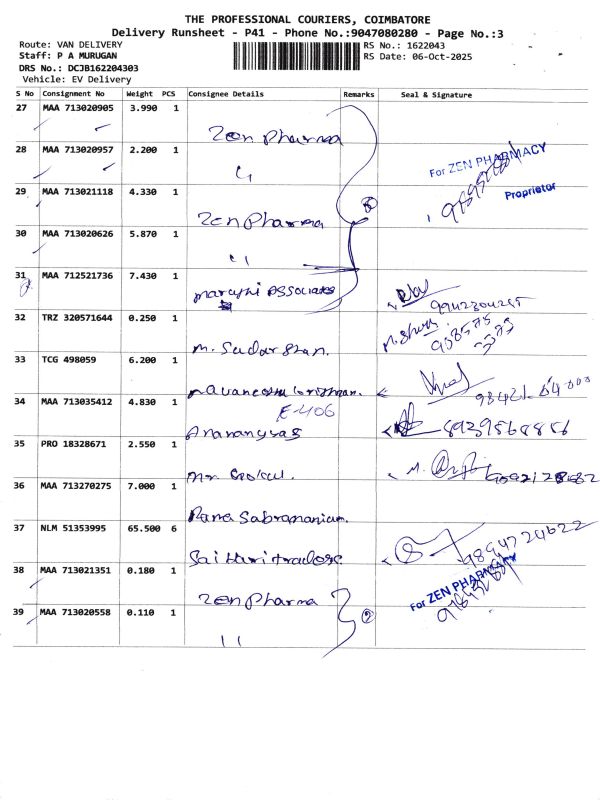 THE PROFESSIONAL COURIERS, COIMBATORE
Delivery Runsheet - P41 - Phone No.:9047080280 - Page No.:3
Route: VAN DELIVERY
Staff: P A MURUGAN
DRS No.: DCJB162204303
Vehicle: EV Delivery
RS No.: 1622043
RS Date: 06-Oct-2025
S No Consignment No Weight PCS Consignee Details Remarks Seal & Signature
27 MAA 713020905 3.990 1
Zen Pharma
28 MAA 713020957 2.200 1
For ZEN PHARMACY
29 MAA 713021118 4.330 1
Proprietor
Zen Pharma
30 MAA 713020626 5.870 1
31 MAA 712521736 7.430 1
Associates
32 TRZ 320571644 0.250 1
M. Sudarshan.
33 TCG 498059 6.200 1
E-406
34 MAA 713035412 4.830 1
35 PRO 18328671 2.550 1
Mr. Gokul.
36 MAA 713270275 7.000 1
Rama Subramanian.
37 NLM 51353995 65.500 6
9894724622
Sai Hari tradors
38 MAA 713021351 0.180 1
Zen Pharma
For ZEN PHARMACY
39 MAA 713020558 0.110 1
2